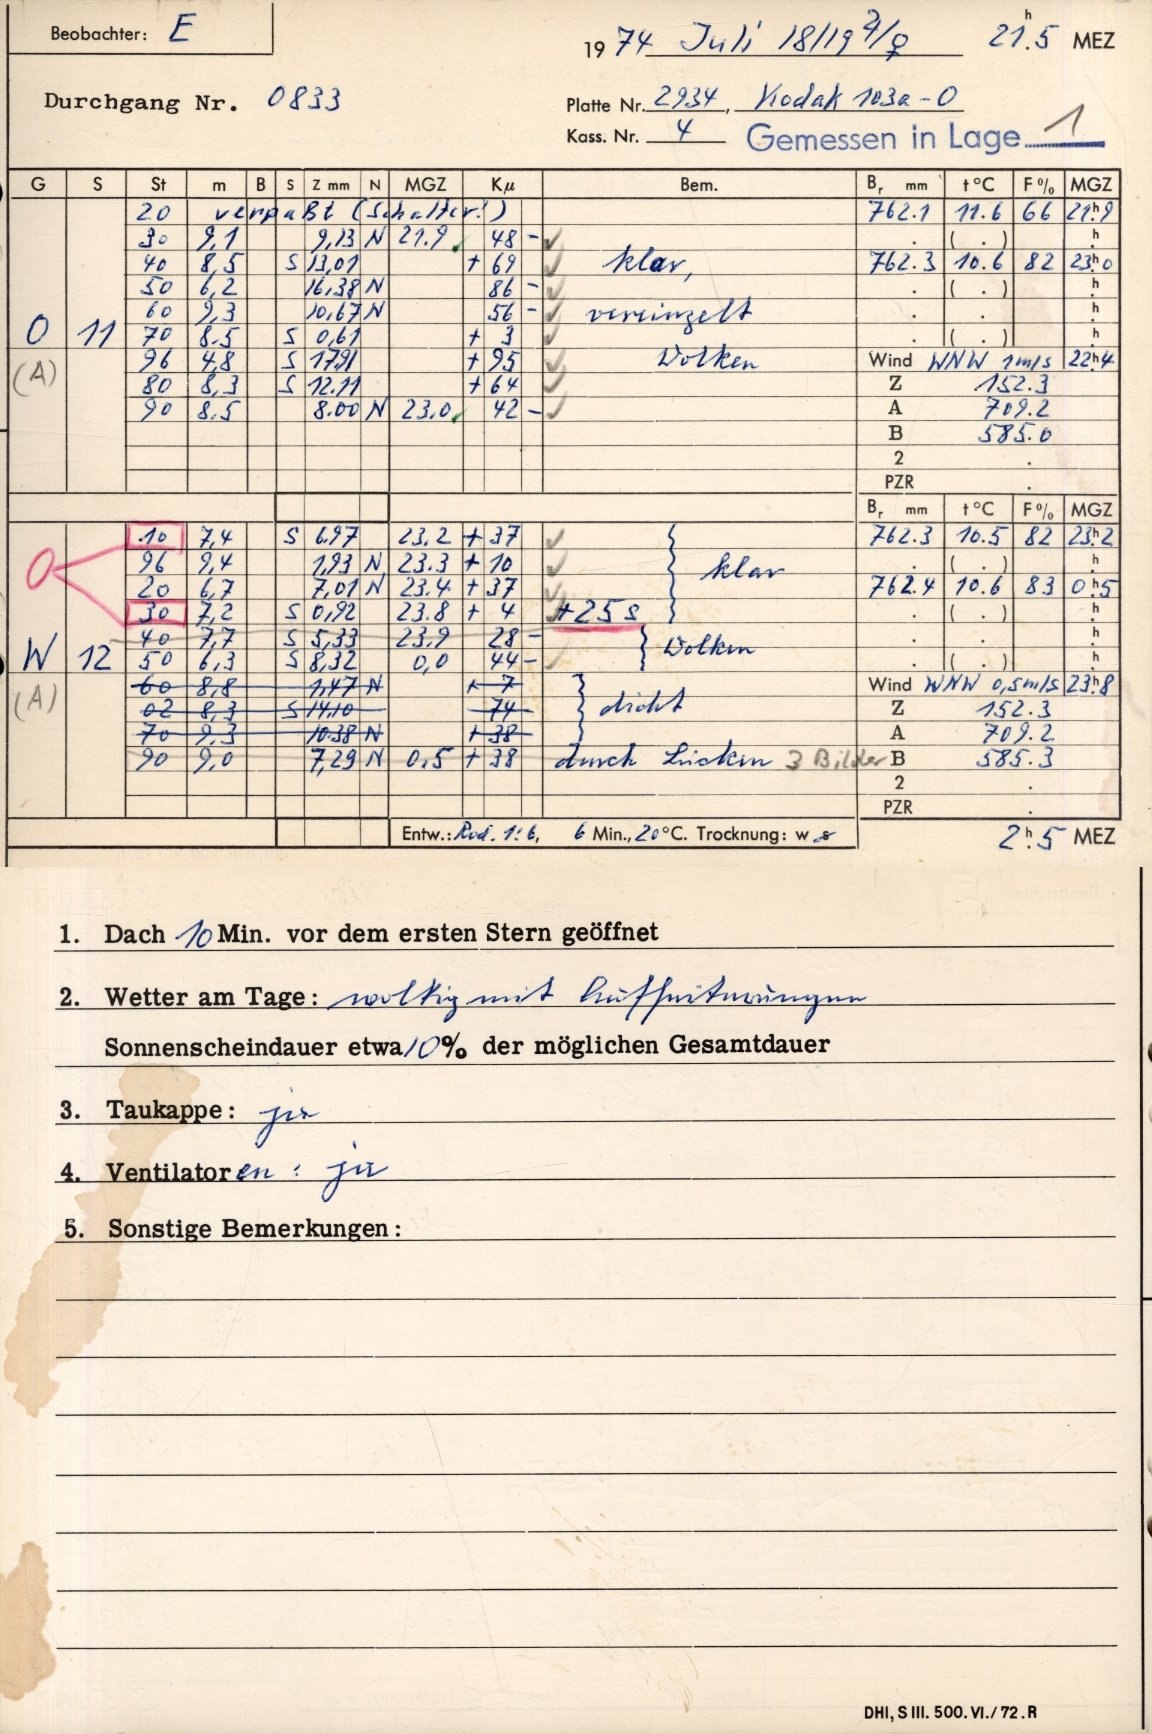 Beobachter: E
1974 Juli 18/19 ♃/♀ 21h.5 MEZ
Durchgang Nr. 0833
Platte Nr. 2934, Kodak 103a-O
Kass. Nr. 4 Gemessen in Lage 1
G S St m B S Z mm N MGZ Kμ Bem. Br mm t °C F % MGZ
20 verpaßt (Schalter!) 762.1 11.6 66 21h9
30 9,1 9,13 N 21.9 48 - ✓ . ( . ) h
40 8,5 S 13,01 + 69 ✓ klar, 762.3 10.6 82 23h0
50 6,2 16,38 N 86 - ✓ . ( . ) h
60 9,3 10,67 N 56 - ✓ vereinzelt . . h
O 11 70 8.5 S 0,61 + 3 ✓ . ( . ) h
(A) 96 4,8 S 17,91 + 95 ✓ Wolken Wind WNW 1m/s 22h4
80 8,3 S 12.11 + 64 ✓ Z 152.3
90 8.5 8.00 N 23,0 42 - ✓ A 709.2
B 585.0
2 .
PZR .
Br mm t °C F % MGZ
10 7,4 S 6.97 23.2 + 37 ✓ 762.3 10.5 82 23h2
O 96 9,4 1,93 N 23.3 + 10 ✓ klar . ( . ) h
20 6,7 7,01 N 23.4 + 37 ✓ 762.4 10.6 83 0h5
30 7,2 S 0,92 23.8 + 4 ✓ +25s . ( . ) h
40 7,7 S 5,33 23,9 28 - . . h
W 12 50 6,3 S 8,32 0,0 44 - ✓ Wolken . ( . ) h
(A) 60 8,8 1,47 N + 7 Wind WNW 0,5m/s 23h8
02 8,3 S 14,10 74 dicht Z 152.3
70 9,3 10.38 N + 38 A 709.2
90 9,0 7,29 N 0,5 + 38 durch Lücken 3 Bilder B 585.3
2 .
PZR .
Entw.: Rod. 1:6, 6 Min., 20°C. Trocknung: w 2h.5 MEZ
1. Dach 10 Min. vor dem ersten Stern geöffnet
2. Wetter am Tage: wolkig mit Aufheiterungen
Sonnenscheindauer etwa 10% der möglichen Gesamtdauer
3. Taukappe: ja
4. Ventilatoren: ja
5. Sonstige Bemerkungen:
DHI, S III. 500. VI./72. R